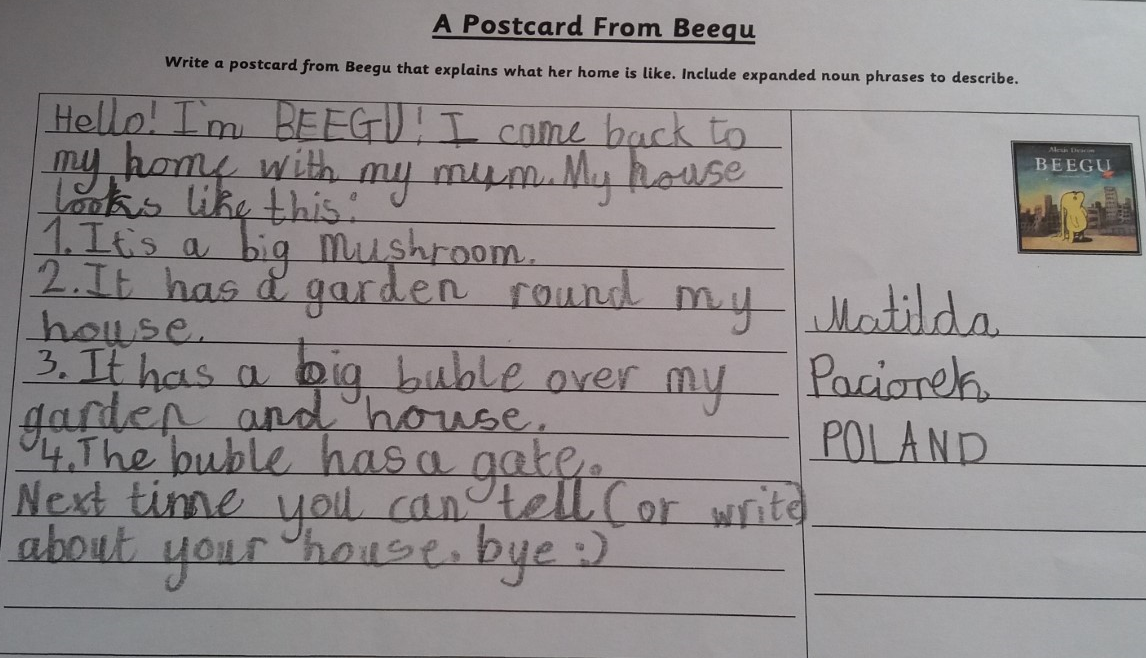 A Postcard From Beegu
Write a postcard from Beegu that explains what her home is like. Include expanded noun phrases to describe.
Hello! I'm BEEGU! I came back to
my home with my mum. My house
looks like this:
1. It's a big mushroom.
2. It has a garden round my
house.
3. It has a big buble over my
garden and house.
4. The buble has a gate.
Next time you can tell (or write)
about your house. bye :)
Alexis Deacon
BEEGU
Matilda
Paciorek
POLAND